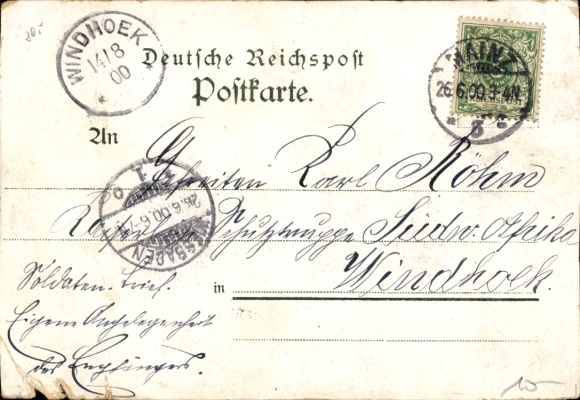 20,-
WINDHOEK
14/8
00
Deutsche Reichspost
Postkarte.
MAINZ
26.6.00.3-4N
* 3 *
REICHSPOST
An
Gefreiten Karl Röhm
Kaiserl. Schutztruppe Südw. Afrika
in Windhoek.
WIESBADEN
26.6.00.6-7N
Soldaten-brief.
Eigene Angelegenheit
des Empfängers.